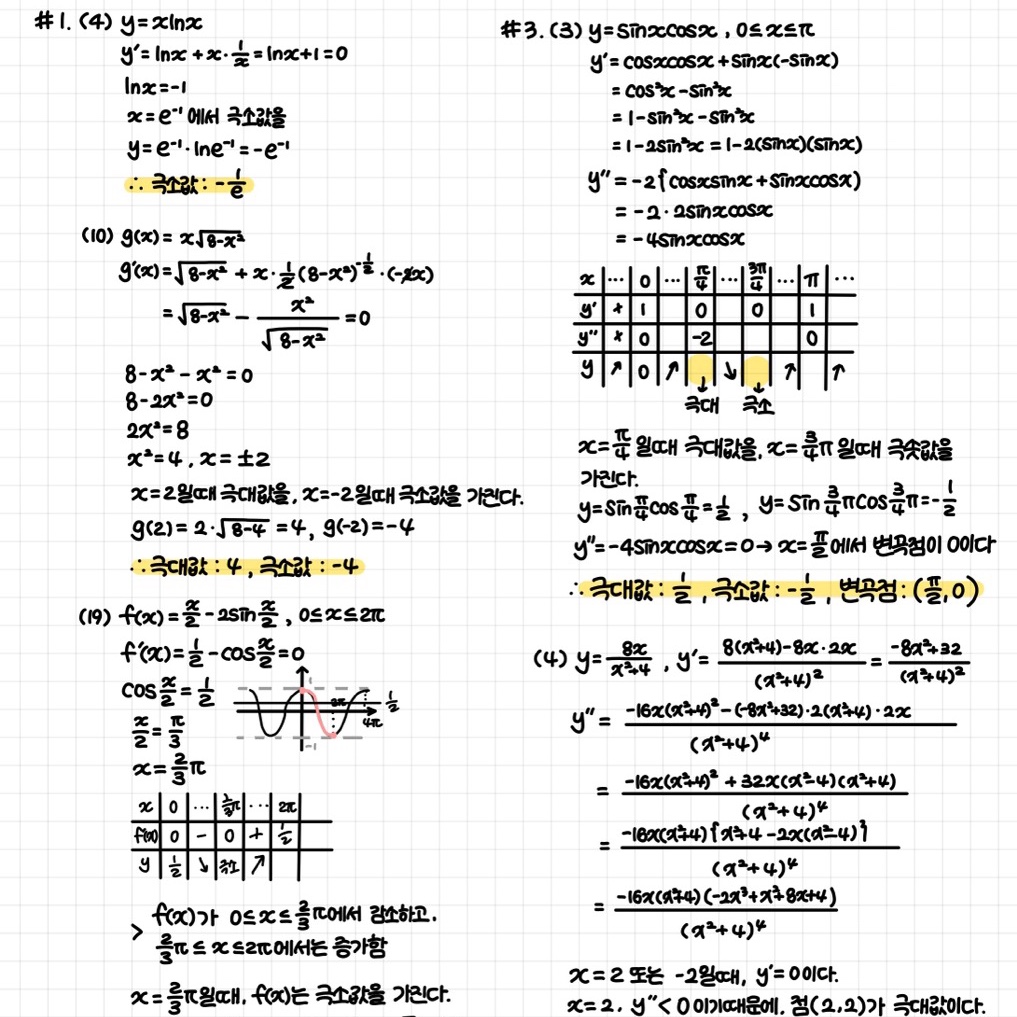 #1. (4) y = xlnx
y' = lnx + x · 1/x = lnx + 1 = 0
lnx = -1
x = e⁻¹ 에서 극소값을
y = e⁻¹ · lne⁻¹ = -e⁻¹
∴ 극소값 : -1/e
(10) g(x) = x√(8-x²)
g'(x) = √(8-x²) + x · 1/2 (8-x²)^(-1/2) · (-2x)
= √(8-x²) - x²/√(8-x²) = 0
8-x² - x² = 0
8-2x² = 0
2x² = 8
x² = 4 , x = ±2
x = 2일때 극대값을, x = -2일때 극소값을 가진다.
g(2) = 2 · √(8-4) = 4, g(-2) = -4
∴ 극대값 : 4 , 극소값 : -4
(19) f(x) = x/2 - 2sin x/2 , 0 ≤ x ≤ 2π
f'(x) = 1/2 - cos x/2 = 0
cos x/2 = 1/2
x/2 = π/3
x = 2/3 π
1
2π
4π
1/2
-1
x 0 ... 2/3π ... 2π
f'(x) 0 - 0 + 1/2
y 1/2 ↘ 극소 ↗
> f(x)가 0 ≤ x ≤ 2/3 π에서 감소하고,
2/3 π ≤ x ≤ 2π에서는 증가함
x = 2/3 π일때, f(x)는 극소값을 가진다.
#3. (3) y = sinxcosx , 0 ≤ x ≤ π
y' = cosxcosx + sinx(-sinx)
= cos²x - sin²x
= 1 - sin²x - sin²x
= 1 - 2sin²x = 1 - 2(sinx)(sinx)
y'' = -2{cosxsinx + sinxcosx)
= -2 · 2sinxcosx
= -4sinxcosx
x ... 0 ... π/4 ... 3π/4 ... π ...
y' + 1 0 0 1
y'' + 0 -2 0
y ↗ 0 ↗ ↘ ↗ ↗
↓ ↓
극대 극소
x = π/4 일때 극대값을, x = 3/4 π 일때 극솟값을
가진다.
y = sin π/4 cos π/4 = 1/2 , y = sin 3/4 π cos 3/4 π = -1/2
y'' = -4sinxcosx = 0 → x = π/2 에서 변곡점이 0이다
∴ 극대값 : 1/2 , 극소값 : -1/2 , 변곡점 : (π/2, 0)
(4) y = 8x/(x²+4) , y' = (8(x²+4) - 8x · 2x)/(x²+4)² = (-8x²+32)/(x²+4)²
y'' = (-16x(x²+4)² - (-8x²+32) · 2(x²+4) · 2x)/(x²+4)⁴
= (-16x(x²+4)² + 32x(x²-4)(x²+4))/(x²+4)⁴
= (-16x(x²+4){x²+4 - 2x(x²-4)})/(x²+4)⁴
= (-16x(x²+4)(-2x³+x²+8x+4))/(x²+4)⁴
x = 2 또는 -2일때, y' = 0이다.
x = 2, y'' < 0 이기때문에, 점(2,2)가 극대값이다.